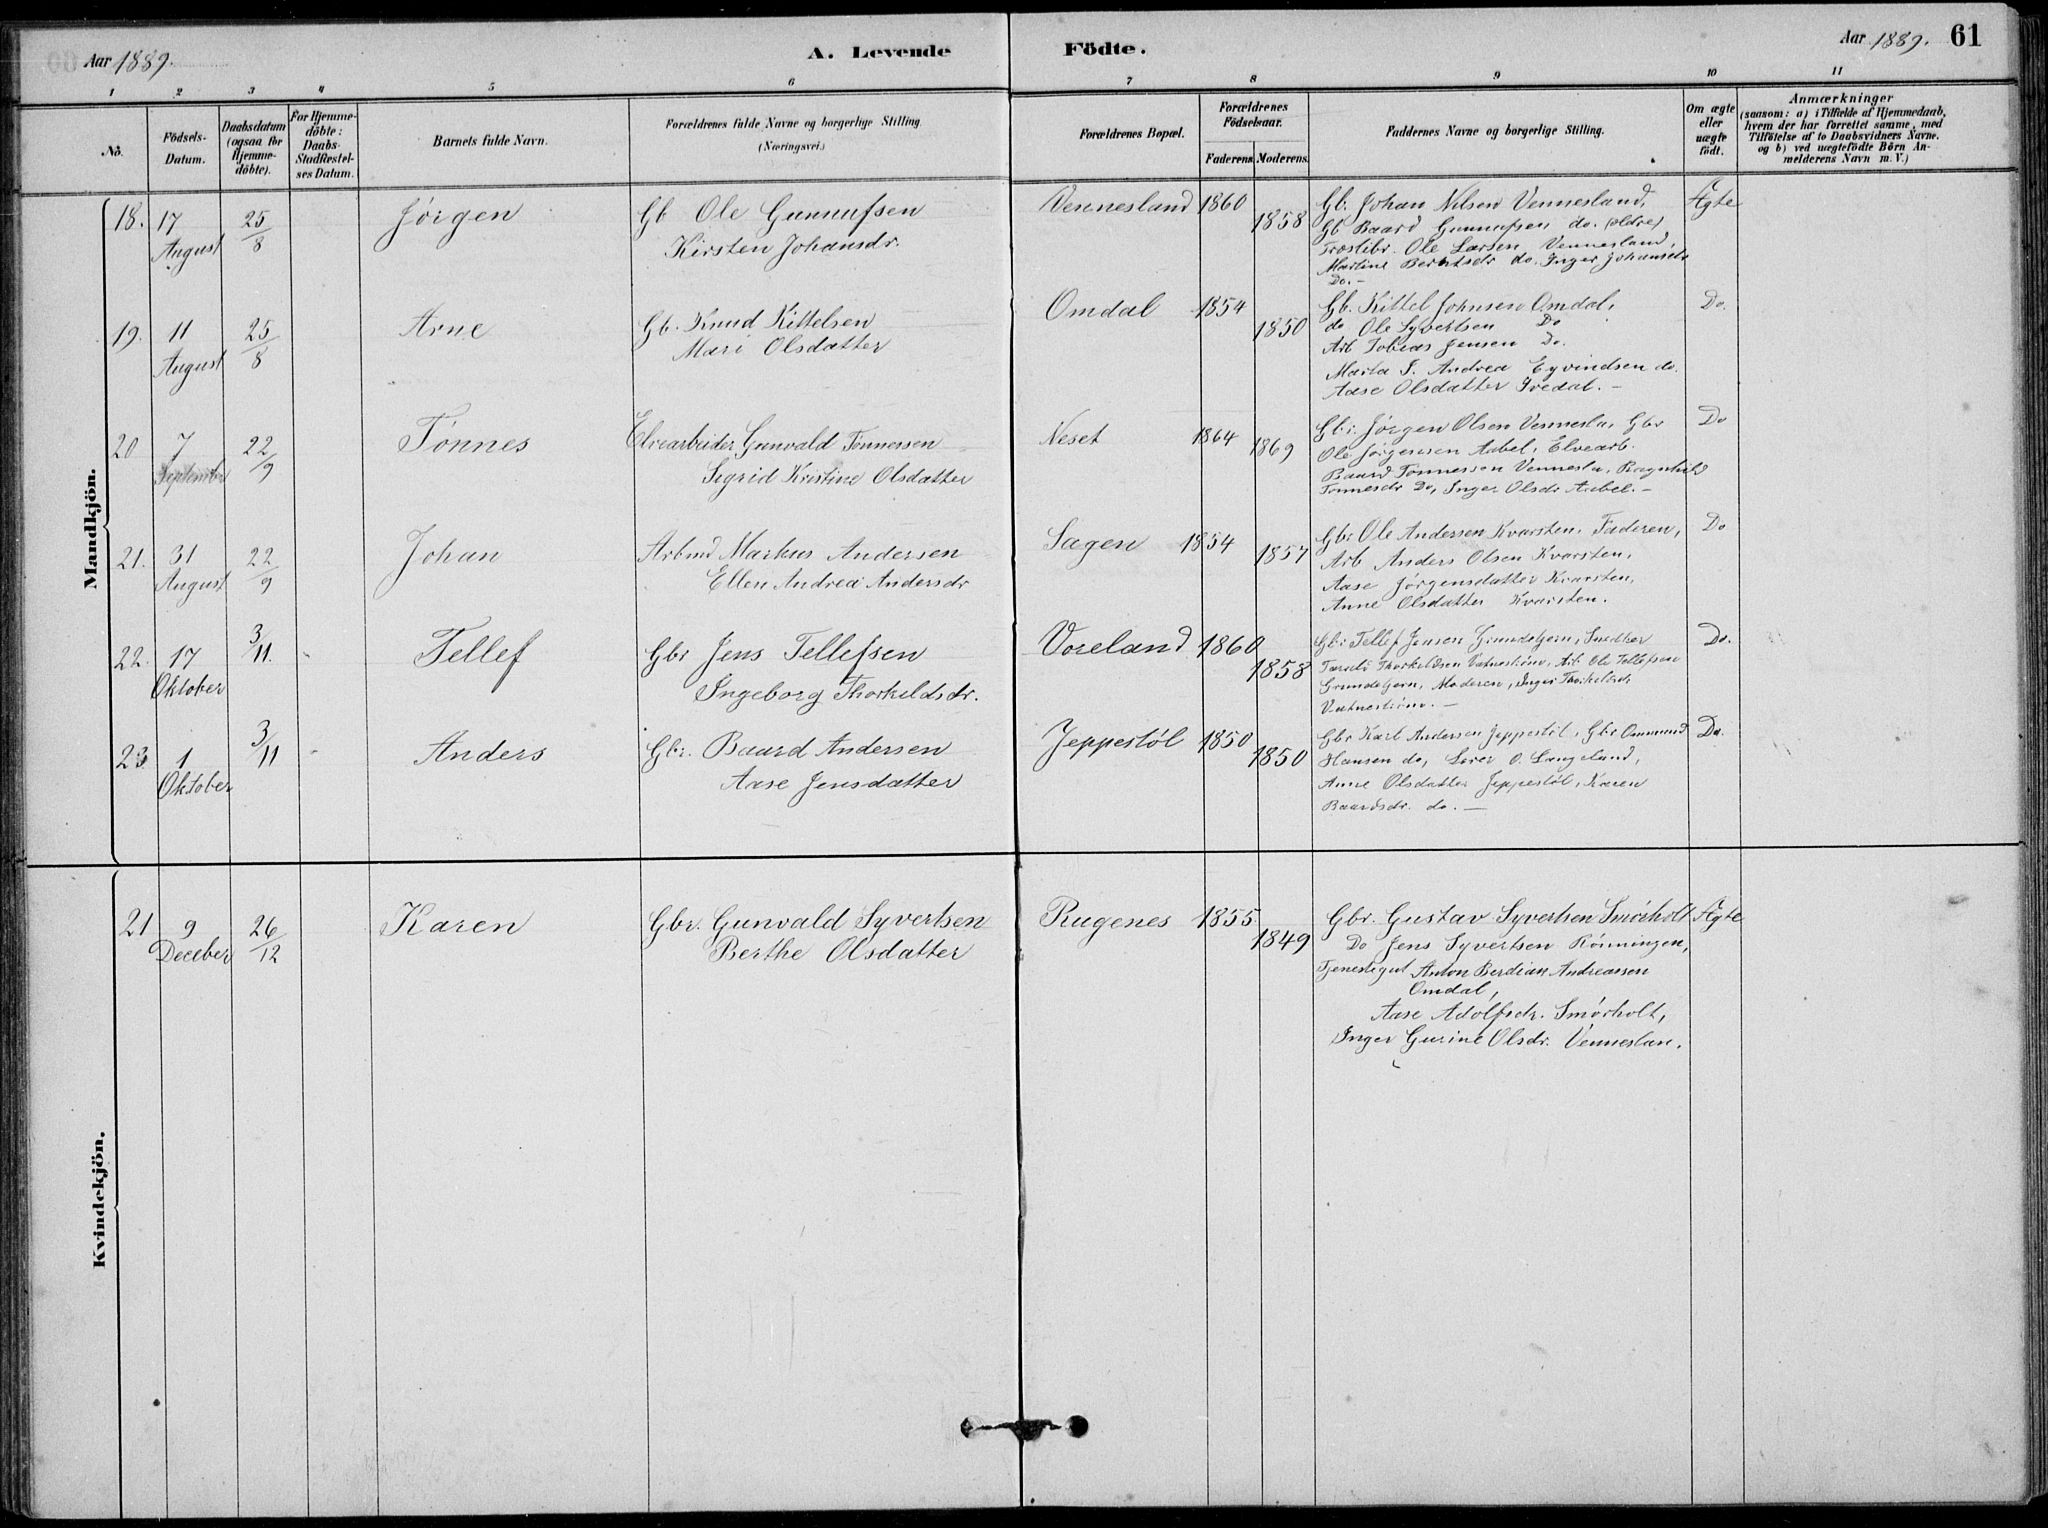 Aar 1889.
A. Levende Födte.
Aar 1889. 61
1 2 3 4 5 6 7 8 9 10 11
No.
Födsels-
Datum.
Daabsdatum
(ogsaa for
Hjemme-
döbte).
For Hjemme-
döbte:
Daabs-
Stadfæstel-
ses Datum.
Barnets fulde Navn.
Forældrenes fulde Navne og borgerlige Stilling.
(Næringsvei.)
Forældrenes Bopæl.
Forældrenes
Födselsaar.
Faderens. Moderens.
Faddernes Navne og borgerlige Stilling.
Om ægte
eller
uægte
födt.
Anmærkninger
(saasom: a) i Tilfælde af Hjemmedaab,
hvem der har forrettet samme, med
Tilföielse af to Daabsvidners Navne,
og b) ved uægtefödte Börn An-
melderens Navn m. V.)
Mandkjön.
18. 17
August
25/8
Jørgen
Gb Ole Gunnufsen
Kirsten Johansdr.
Vennesland 1860
1858
Gb. Johan Nilsen Vennesland,
Gb Baard Gunnufsen do. (ældre)
Ole Larsen Vennesland,
Martine Berntsdr do. Inger Johansdr
Do.-
Ægte
19. 11
August
25/8
Arne
Gb. Knud Kittelsen
Mari Olsdatter
Omdal 1854
1850
Gb. Kittel Johnsen Omdal,
do Ole Syvertsen Do
Arb Tobias Jensen Do.
Marta S. Andrea Eyvindsen do.
Aase Olsdatter Ivedal. -
Do.
20 7
September
22/9
Tönnes
Elvearbeider Gunvald Tönnessen
Sigrid Kristine Olsdatter
Neset 1864
1869
Gbr. Jørgen Olsen Vennesla, Gbr
Ole Jørgensen Aabel, Elvearb.
Baard Tönnessen Vennesla, Ragnhild
Tönnesdr Do, Inger Olsdr Aabel. -
Do
21. 31
August
22/9
Johan
Arbmd Markus Andersen
Ellen Andrea Andersdr
Sagen 1854
1857
Gbr Ole Andersen Kvarsten, Faderen,
Arb Anders Olsen Kvarsten,
Aase Jørgensdatter Kvarsten,
Anne Olsdatter Kvarsten.
Do
22. 17
Oktober
3/11.
Tellef
Gbr Jens Tellefsen
Ingeborg Thorkildsdr.
Voreland 1860
1858
Gbr Tellef Jensen Grundetjern, Snedker
Thorkildsen Vatnestrøm, Arb. Ole Tellefsen
Grundetjern, Moderen, Inger Thorkildsdr
Vatnestrøm. -
Do.
23 1
Oktober
3/11
Anders
Gbr. Baard Andersen
Aase Jensdatter
Jeppestøl 1850
1850
Gbr Karl Andersen Jeppestøl, Gbr Ommund
Hansen do, O. Langeland,
Anne Olsdatter Jeppestøl, Karen
Baardsdr. do. -
Do.
Kvindekjön.
21 9
Deceber
26/12
Karen
Gbr. Gunvald Syvertsen
Berthe Olsdatter
Rugenes 1855
1849
Gbr. Gustav Syvertsen Smørholt
Do Jens Syvertsen Rönningen,
Tjenestegut Anton Berdian Andreassen
Omdal,
Aase Adolfsdr. Smørholt,
Inger Gurine Olsdr. Venneslan.
Ægte